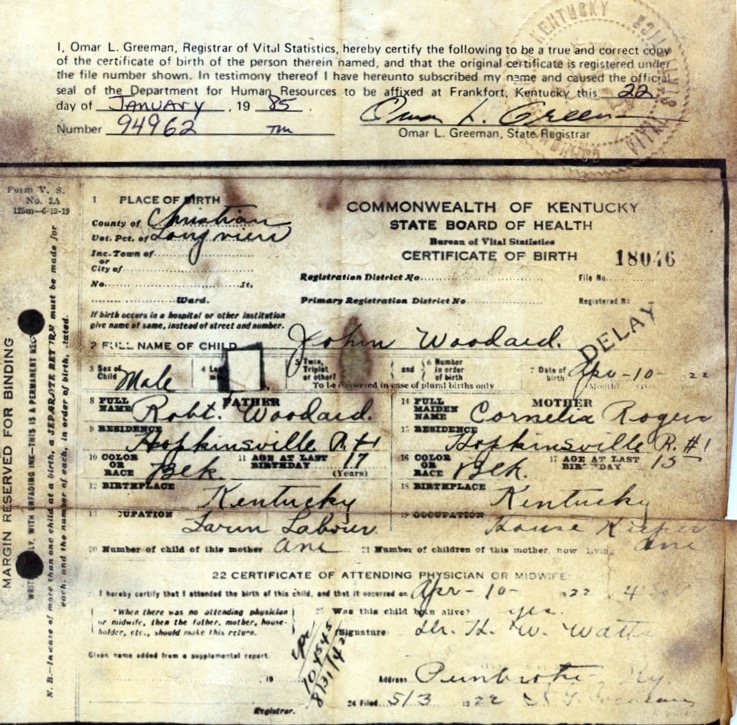 I, Omar L. Greeman, Registrar of Vital Statistics, hereby certify the following to be a true and correct copy
of the certificate of birth of the person therein named, and that the original certificate is registered under
the file number shown. In testimony thereof I have hereunto subscribed my name and caused the official
seal of the Department for Human Resources to be affixed at Frankfort, Kentucky this 22
day of JANUARY, 19 85. Omar L. Greeman
Number 94962 Omar L. Greeman, State Registrar
KENTUCKY
VITAL STATISTICS
Form V. S.
No. 2A
MARGIN RESERVED FOR BINDING
WITH UNFADING INK—THIS IS A PERMANENT
N. B.—In case of more than one child at a birth, a SEPARATE RETURN must be made for
each, and the number of each, in order of birth, stated.
1 PLACE OF BIRTH
County of Christian
Vot. Pct. of Longview
Inc. Town of
or
City of
No. St.
Ward.
If birth occurs in a hospital or other institution
give name of same, instead of street and number.
COMMONWEALTH OF KENTUCKY
STATE BOARD OF HEALTH
Bureau of Vital Statistics
CERTIFICATE OF BIRTH 18046
Registration District No. File No.
Primary Registration District No. Registered No.
DELAY
2 FULL NAME OF CHILD John Woodard.
3 Sex of Child Male 4 5 Twin, Triplet or other? and 6 Number in order of birth 7 Date of birth Apr-10- 22
To be answered in case of plural births only
FATHER MOTHER
8 FULL NAME Robt. Woodard. 14 FULL MAIDEN NAME Cornelia Rogers
9 RESIDENCE Hopkinsville R#1 15 RESIDENCE Hopkinsville R.#1
10 COLOR OR RACE Blk. 11 AGE AT LAST BIRTHDAY 17 (Years) 16 COLOR OR RACE Blk. 17 AGE AT LAST BIRTHDAY 15
12 BIRTHPLACE Kentucky 18 BIRTHPLACE Kentucky
OCCUPATION Farm Labour 19 OCCUPATION House Keeper
20 Number of child of this mother One 21 Number of children of this mother, now living One
22 CERTIFICATE OF ATTENDING PHYSICIAN OR MIDWIFE
I hereby certify that I attended the birth of this child, and that it occurred on Apr-10- 22
*When there was no attending physician
or midwife, then the father, mother, house-
holder, etc., should make this return.
Was this child born alive? yes.
Signature Dr. H. W. Watts
Given name added from a supplemental report.
19
Registrar.
8/31/42
Address Pembroke Ky.
24 Filed 5/3 1922